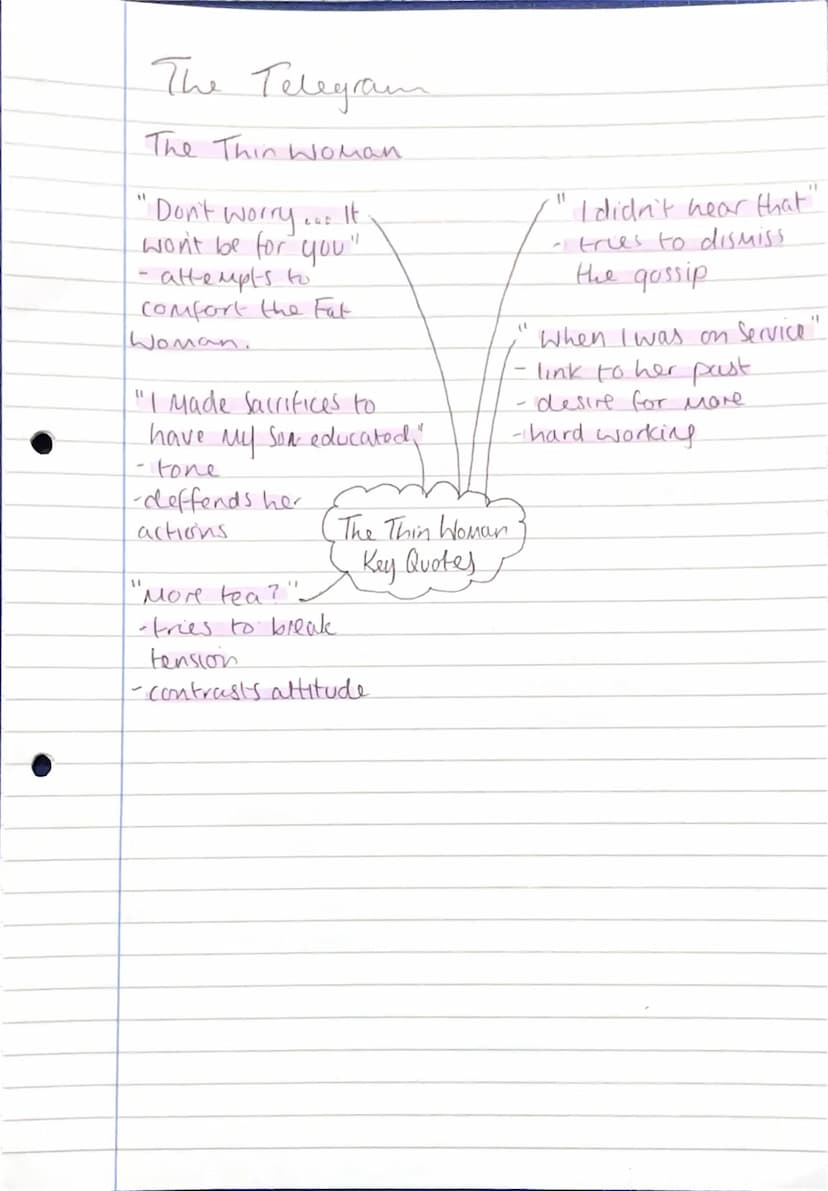 The Telegram
The Thin Woman
"Don't worry... It
won't be for you"
- attempts to
comfort the Fat
Woman.
"I made sacrifices to
have my son educated."
- tone
- deffends her
actions
"More tea?"
- tries to break
tension
- contrasts attitude
"I didn't hear that"
- tries to dismiss
the gossip
"When I was on Service"
- link to her past
- desire for more
- hard working
The Thin Woman
Key Quotes